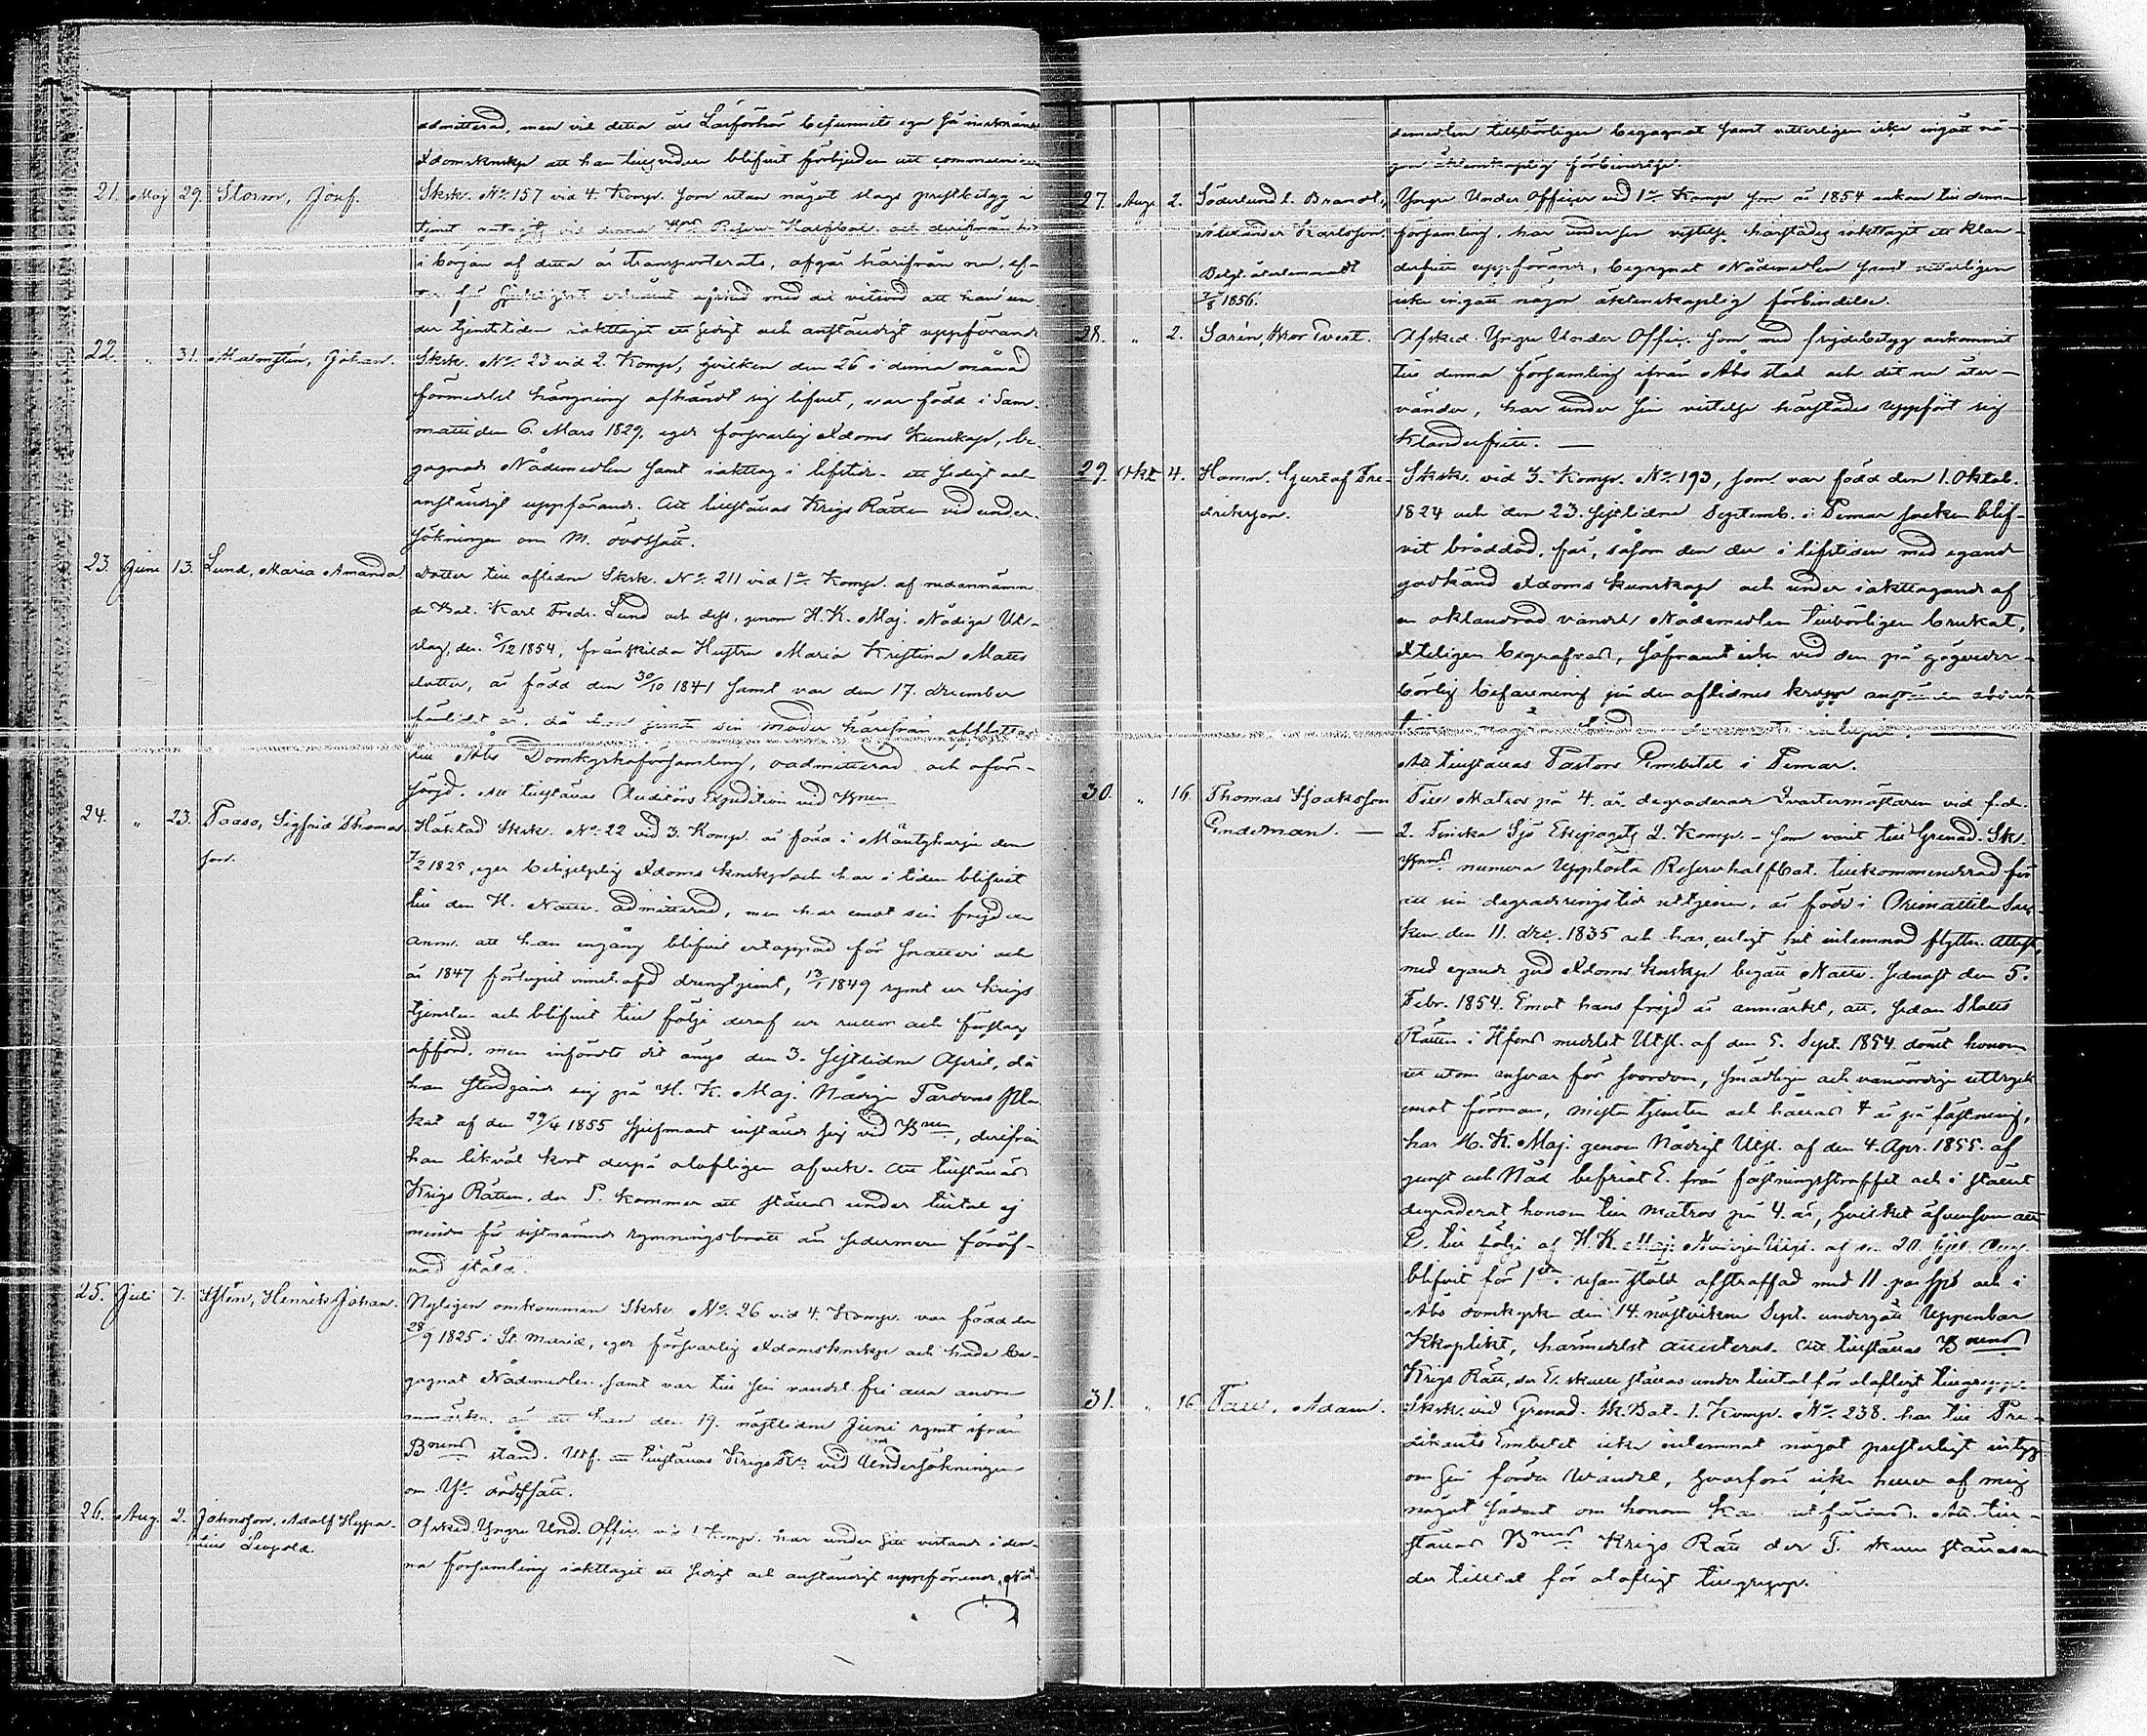 admitterad, men vid detta års Läsförhör befunnits ega så inskränkt
Xdomsknskp att han tillsvidare blifvit förbjuden att communicera
21. Maj 29. Storm, Josef. Skrsk. No. 157 vid 4. Komp. som utan något slags prestbetyg i
tjenst vid denna Reserv Halfbat. och derifrån
i början af detta år transporterats, afgår härifrån nu, ef-
ter för sjuklighet erhållit afsked med det vitsord att han un-
der tjenstetiden iakttagit ett sedigt och anständigt uppförande
22. " 31. Malmstén, Johan. Skrsk. No. 23 vid 2. Komp, hvilken den 26 i denna månad
förmedelst hängning afhändt sig lifvet, var född i Sam-
matti den 6. Mars 1829, eger försvarlig Xdoms kunskap, be-
gagnade Nådemedlen samt iakttog i lifstid ett sedigt och
anständigt uppförande. Att tillställas Krigs Rätten vid under-
sökningen om M. dödssätt.
23. Juni 13. Lund, Maria Amanda. Dotter till aflidne Skrsk. No. 211 vid 1a Komp. af nedannämn-
de Bat. Karl Fredr. Lund och dess, genom H. K. Maj. Nådiga Ut-
slag, den 5/12 1854, frånskilda Hustru Maria Kristina Matts
dotter, är född den 30/10 1841 samt var den 17. December
förlidet år, då hon jemte sin moder härifrån afflyttade
till Åbo Domkyrkoförsamling, oadmitterad och oför-
sörjd. Att tillställas Auditörs Expedition vid Bnen
24. " 23. Paaso, Sigfrid Thomas Häktad Skrsk. No. 22 vid 3. Komp. är född i Mäntyharju den
son. 7/2 1825, eger behjelplig Xdoms knskp och har i tiden blifvit
till den H. Nattv. admitterad, men har emot sin frejd en
anm. att han engång blifvit ertappad för snatteri och
år 1847 förlupit drengtjenst, 13/1 1849 rymt ur krigs
tjensten och blifvit till följe deraf ur rullor och förslag
afförd, men infördt det ånyo den 3. sistlidne April, då
han stödjande sig på H. K. Maj. Nådiga Pardons Pla-
kat af den 29/4 1855 sjelfmant inställde sig vid Bnen, derifrån
han likväl kort derpå olofligen afvek. Att tillställas
Krigs Rätten, der P. kommer att ställas under tiltal ej
mindre för sistnämnde rymningsbrott än sedermera föröf-
vad stöld.
25. Juli 7. Ystén, Henrik Johan. Nyligen omkommen Skrsk No. 26 vid 4. Komp. var född den
28/9 1825 i St. Mariæ, eger försvarlig Xdomsknskp och hade be-
gagnat Nådemedlen samt var till sin vandel fri alla andra
anmärkn. än att han den 19. nästlidne Juni rymt ifrån
Bnens stånd. Utf. att tillställas Krigs Rtn vid Undersökningen
om Y. dödssätt.
26. Aug. 2. Johnsson, Adolf Hyppo- Afsked. Yngre Und. Offic. vid 1 Komp. har under sitt vistande i den-
Leopold. na församling iakttagit ett sedigt och anständigt uppförande, Nå-
demedlen tillbörligen begagnat samt vetterligen icke ingått nå-
gon äktenskaplig förbindelse.
27. Aug. 2. Söderlund l. Brandt, Yngre Under Officer vid 1a Komp som år 1854 ankom till denna
Alexander Karlsson. församling, har under sin vistelse härstädes iakttagit ett klan-
Betyg. återlemnadt derfritt uppförande, begagnat Nådemedlen samt vetterligen
7/8 1856. icke ingått någon äktenskaplig förbindelse.
28. " 2. Sarin, Afsked. Yngre Under Offic. som med frejdebetyg ankommit
till denna församling ifrån Åbo stad och dit nu åter-
vänder, har under sin vistelse härstädes uppfört sig
klanderfritt. —
29. Okt. 4. Homn. Gustaf Fre- Skrsk. vid 3. Komp. No. 193, som var född den 1. Oktob.
driksson. 1824 och den 23. sistlidne Septemb. i Pemar socken blif-
vit bråddöd, får, såsom den der i lifstiden med egande
godkänd Xdoms kunskap och under iakttagande af
en oklandrad vandel Nådemedlen tillbörligen brukat,
Xteligen begrafvas, såframt icke vid den på
börlig befallning på den aflidnes kropp
Att tillställas Pastors Embetet i Pemar.
30. " 16. Thomas Isaksson Till Matros på 4. år degraderade Qvartermästaren vid f.d.
Endeman. — 2. Finska Sjö Ekipagets 2. Komp. – som varit till Grenad. Sk.
Bnens numera upplösta Reservhalfbat. tillkommenderad för
att sin degraderingstid uttjena, är född i Orimattila Soc-
ken den 11. Dec. 1835 och har, enligt hit inlemnad flyttn. attest,
med egande god Xdoms knskp begått Nattv. sednast den 5.
Febr. 1854. Emot hans frejd är anmärkt, att, sedan Stads
Rätten i Hfors medelst Utsl. af den 5. Sept. 1854 dömt honom
att utom ansvar för svordom, smädliga och vanvördiga uttryck
emot förman, mista tjensten och hållas 4 år på fästning,
har H. K. Maj. genom Nådigt Utsl. af den 4. Apr. 1855. af
gunst och Nåd befriat E. från fästningsstraffet och i stället
degraderat honom till matros på 4. år, hvilket äfvensom att
E. till följe af H. K. Maj. Nådiga Utsl. af den 20 sistl. Aug.
blifvit för 1sta resan stöld afstraffad med 11. par spö och i
Åbo domkyrka den 14. nästvikne Sept. undergått Uppenbar
Kkoplikt, härmedelst attesteras. Att tillställas Bnens
Krigs Rätt, der E. skulle ställas under tiltal för olofligt tillgrepp.
31. " 16. Adam. Skrsk. vid Grenad. Sk. Bat. 1. Komp. No. 238. har till Pre-
dikants Embetet icke inlemnat något presterligt intyg
om sin förda vandel, hvarföre icke heller af mig
något sådant om honom kan utfärdas. Att till-
ställas Bnens Krigs Rätt der skulle ställas un-
der tilltal för olofligt tillgrepp.